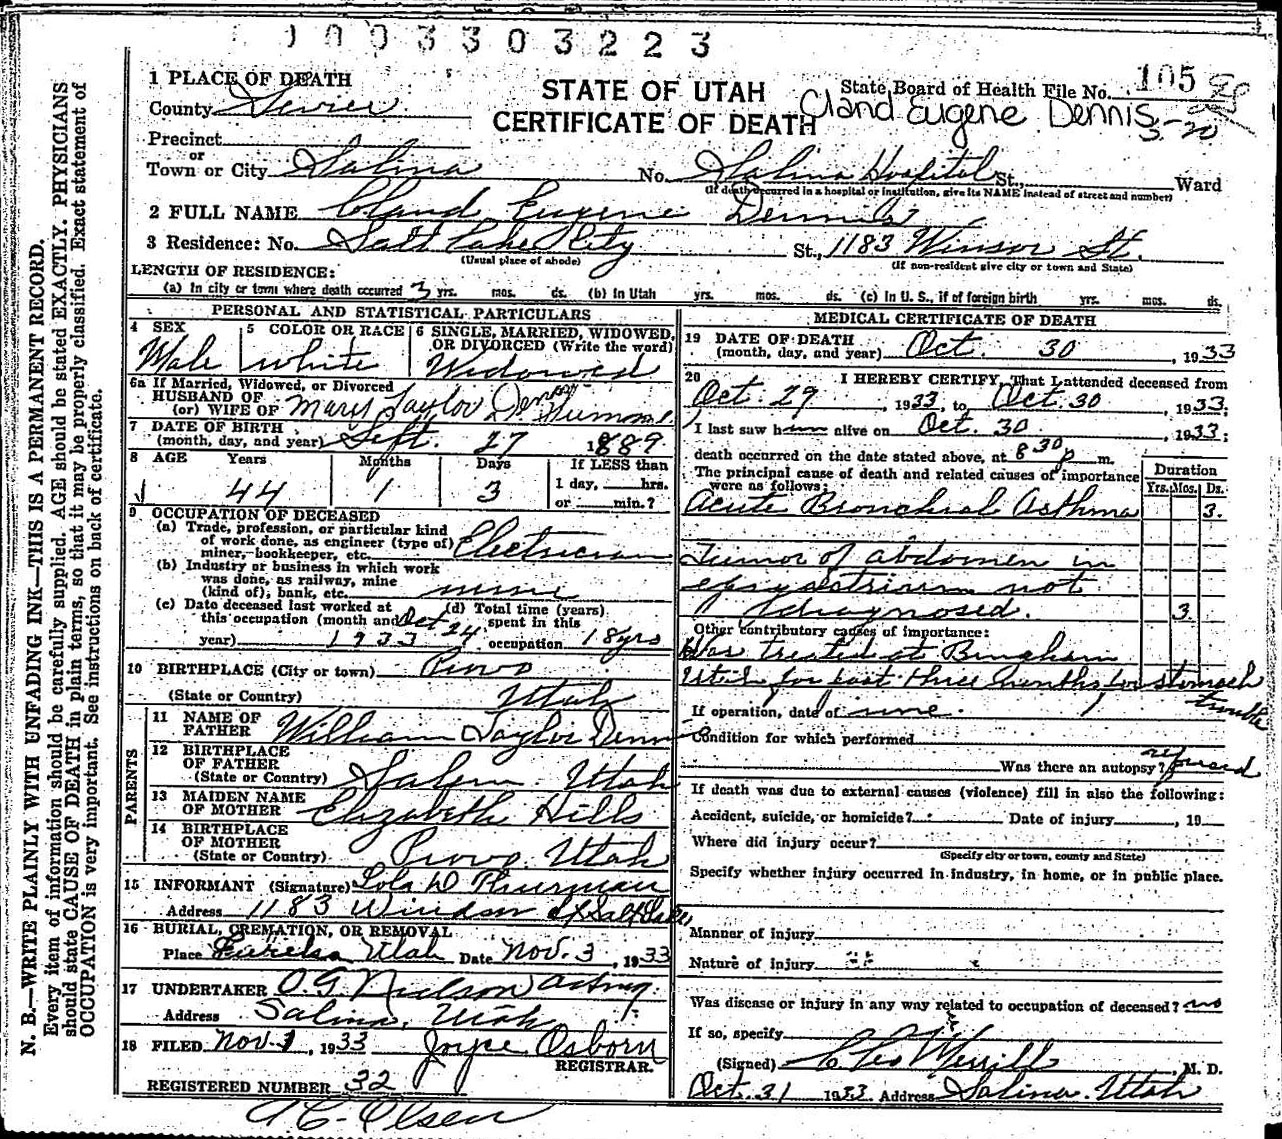 1003303223
1 PLACE OF DEATH
STATE OF UTAH
CERTIFICATE OF DEATH
State Board of Health File No. 105
Cland Eugene Dennis
County Sevier
Precinct
or
Town or City Salina No. Salina Hospital St., Ward
(If death occurred in a hospital or institution, give its NAME instead of street and number)
2 FULL NAME Cland Eugene Dennis
3 Residence: No. Salt Lake City St., 1183 Winsor St.
(Usual place of abode) (If non-resident give city or town and State)
LENGTH OF RESIDENCE:
(a) In city or town where death occurred 3 yrs. mos. ds. (b) In Utah yrs. mos. ds. (c) In U. S., if of foreign birth yrs. mos. ds.
PERSONAL AND STATISTICAL PARTICULARS
4 SEX Male
5 COLOR OR RACE white
6 SINGLE, MARRIED, WIDOWED, OR DIVORCED (Write the word) Widowed
6a If Married, Widowed, or Divorced
HUSBAND OF
(or) WIFE OF Mary Taylor
7 DATE OF BIRTH
(month, day, and year) Sept. 27 1889
8 AGE Years Months Days If LESS than
44 1 3 1 day, hrs.
or min.?
9 OCCUPATION OF DECEASED
(a) Trade, profession, or particular kind
of work done, as engineer (type of)
miner, bookkeeper, etc. Electrician
(b) Industry or business in which work
was done, as railway, mine
(kind of), bank, etc. mine
(c) Date deceased last worked at
this occupation (month and
year) Oct 24 1933
(d) Total time (years)
spent in this
occupation 18 yrs
10 BIRTHPLACE (City or town) Provo
(State or Country) Utah
PARENTS
11 NAME OF
FATHER William Taylor Dennis
12 BIRTHPLACE
OF FATHER
(State or Country) Salem Utah
13 MAIDEN NAME
OF MOTHER Elizabeth Hills
14 BIRTHPLACE
OF MOTHER
(State or Country) Provo Utah
15 INFORMANT (Signature) Lola D Thurman
Address 1183 Windsor St Salt Lake
16 BURIAL, CREMATION, OR REMOVAL
Place Eureka Utah Date Nov. 3, 1933
17 UNDERTAKER O. G. Neilson Acting
Address Salina, Utah
18 FILED Nov 1, 1933 Joyce Osborn
REGISTRAR.
REGISTERED NUMBER 32
A C Olsen
MEDICAL CERTIFICATE OF DEATH
19 DATE OF DEATH
(month, day, and year) Oct. 30, 1933
20 I HEREBY CERTIFY, That I attended deceased from
Oct. 29, 1933, to Oct. 30, 1933;
I last saw him alive on Oct. 30, 1933;
death occurred on the date stated above, at 8 30 p m.
The principal cause of death and related causes of importance
were as follows:
Duration
Yrs. Mos. Ds.
Acute Bronchial Asthma 3.
Tumor of abdomen in
epigastrium not
diagnosed. 3
Other contributory causes of importance:
Was treated at Bingham
Utah for last three months for stomach
trouble
If operation, date of none.
Condition for which performed
Was there an autopsy? refused
If death was due to external causes (violence) fill in also the following:
Accident, suicide, or homicide? Date of injury , 19
Where did injury occur?
(Specify city or town, county and State)
Specify whether injury occurred in industry, in home, or in public place.
Manner of injury
Nature of injury
Was disease or injury in any way related to occupation of deceased? no
If so, specify
(Signed) C Leo Merrill, M. D.
Oct. 31 1933 Address Salina, Utah
N. B.—WRITE PLAINLY WITH UNFADING INK—THIS IS A PERMANENT RECORD.
Every item of information should be carefully supplied. AGE should be stated EXACTLY. PHYSICIANS
should state CAUSE OF DEATH in plain terms, so that it may be properly classified. Exact statement of
OCCUPATION is very important. See instructions on back of certificate.